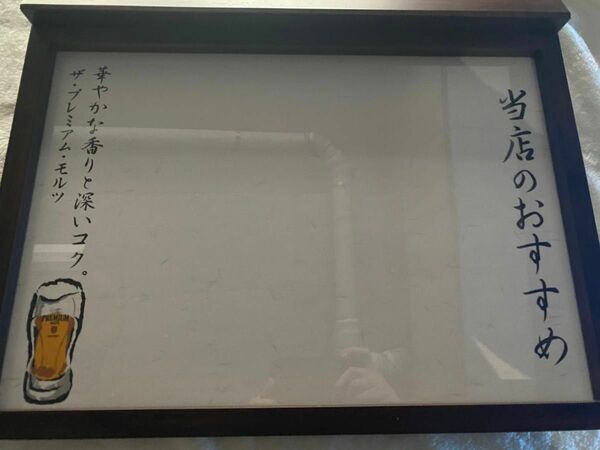 当店のおすすめ
華やかな香りと深いコク。
ザ・プレミアム・モルツ
PREMIUM